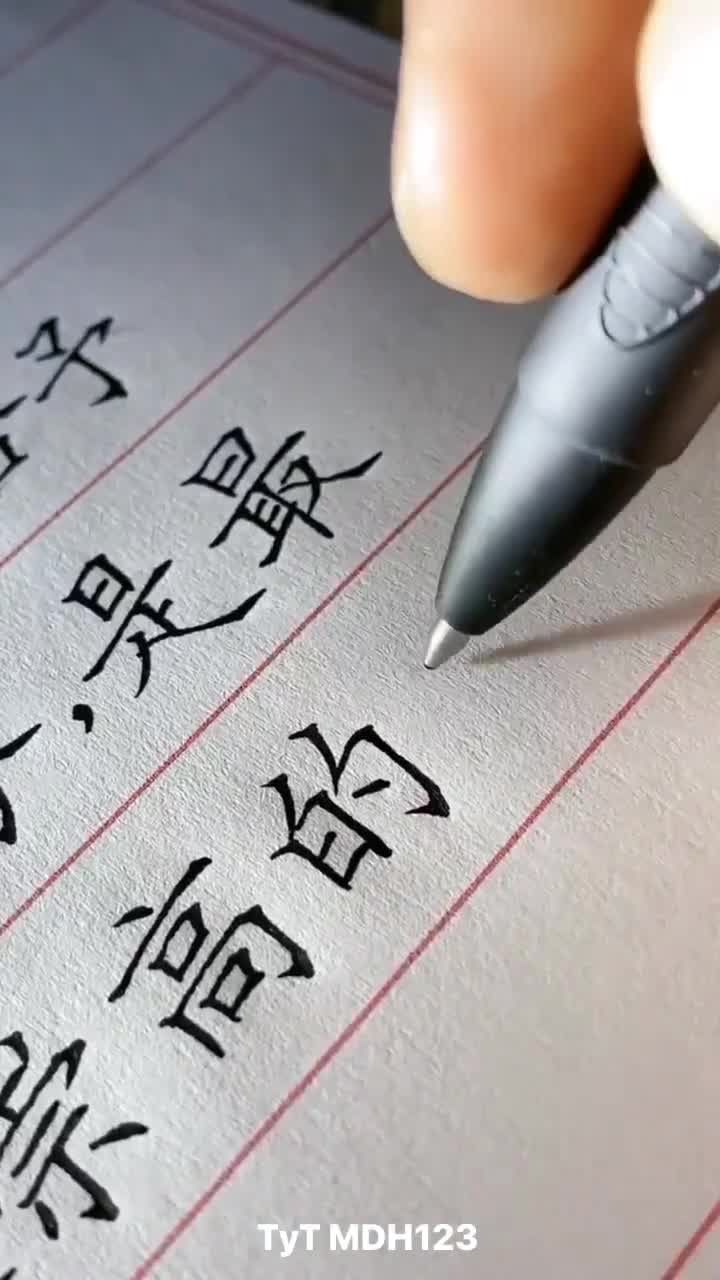 子
,是最
崇高的
TyT MDH123